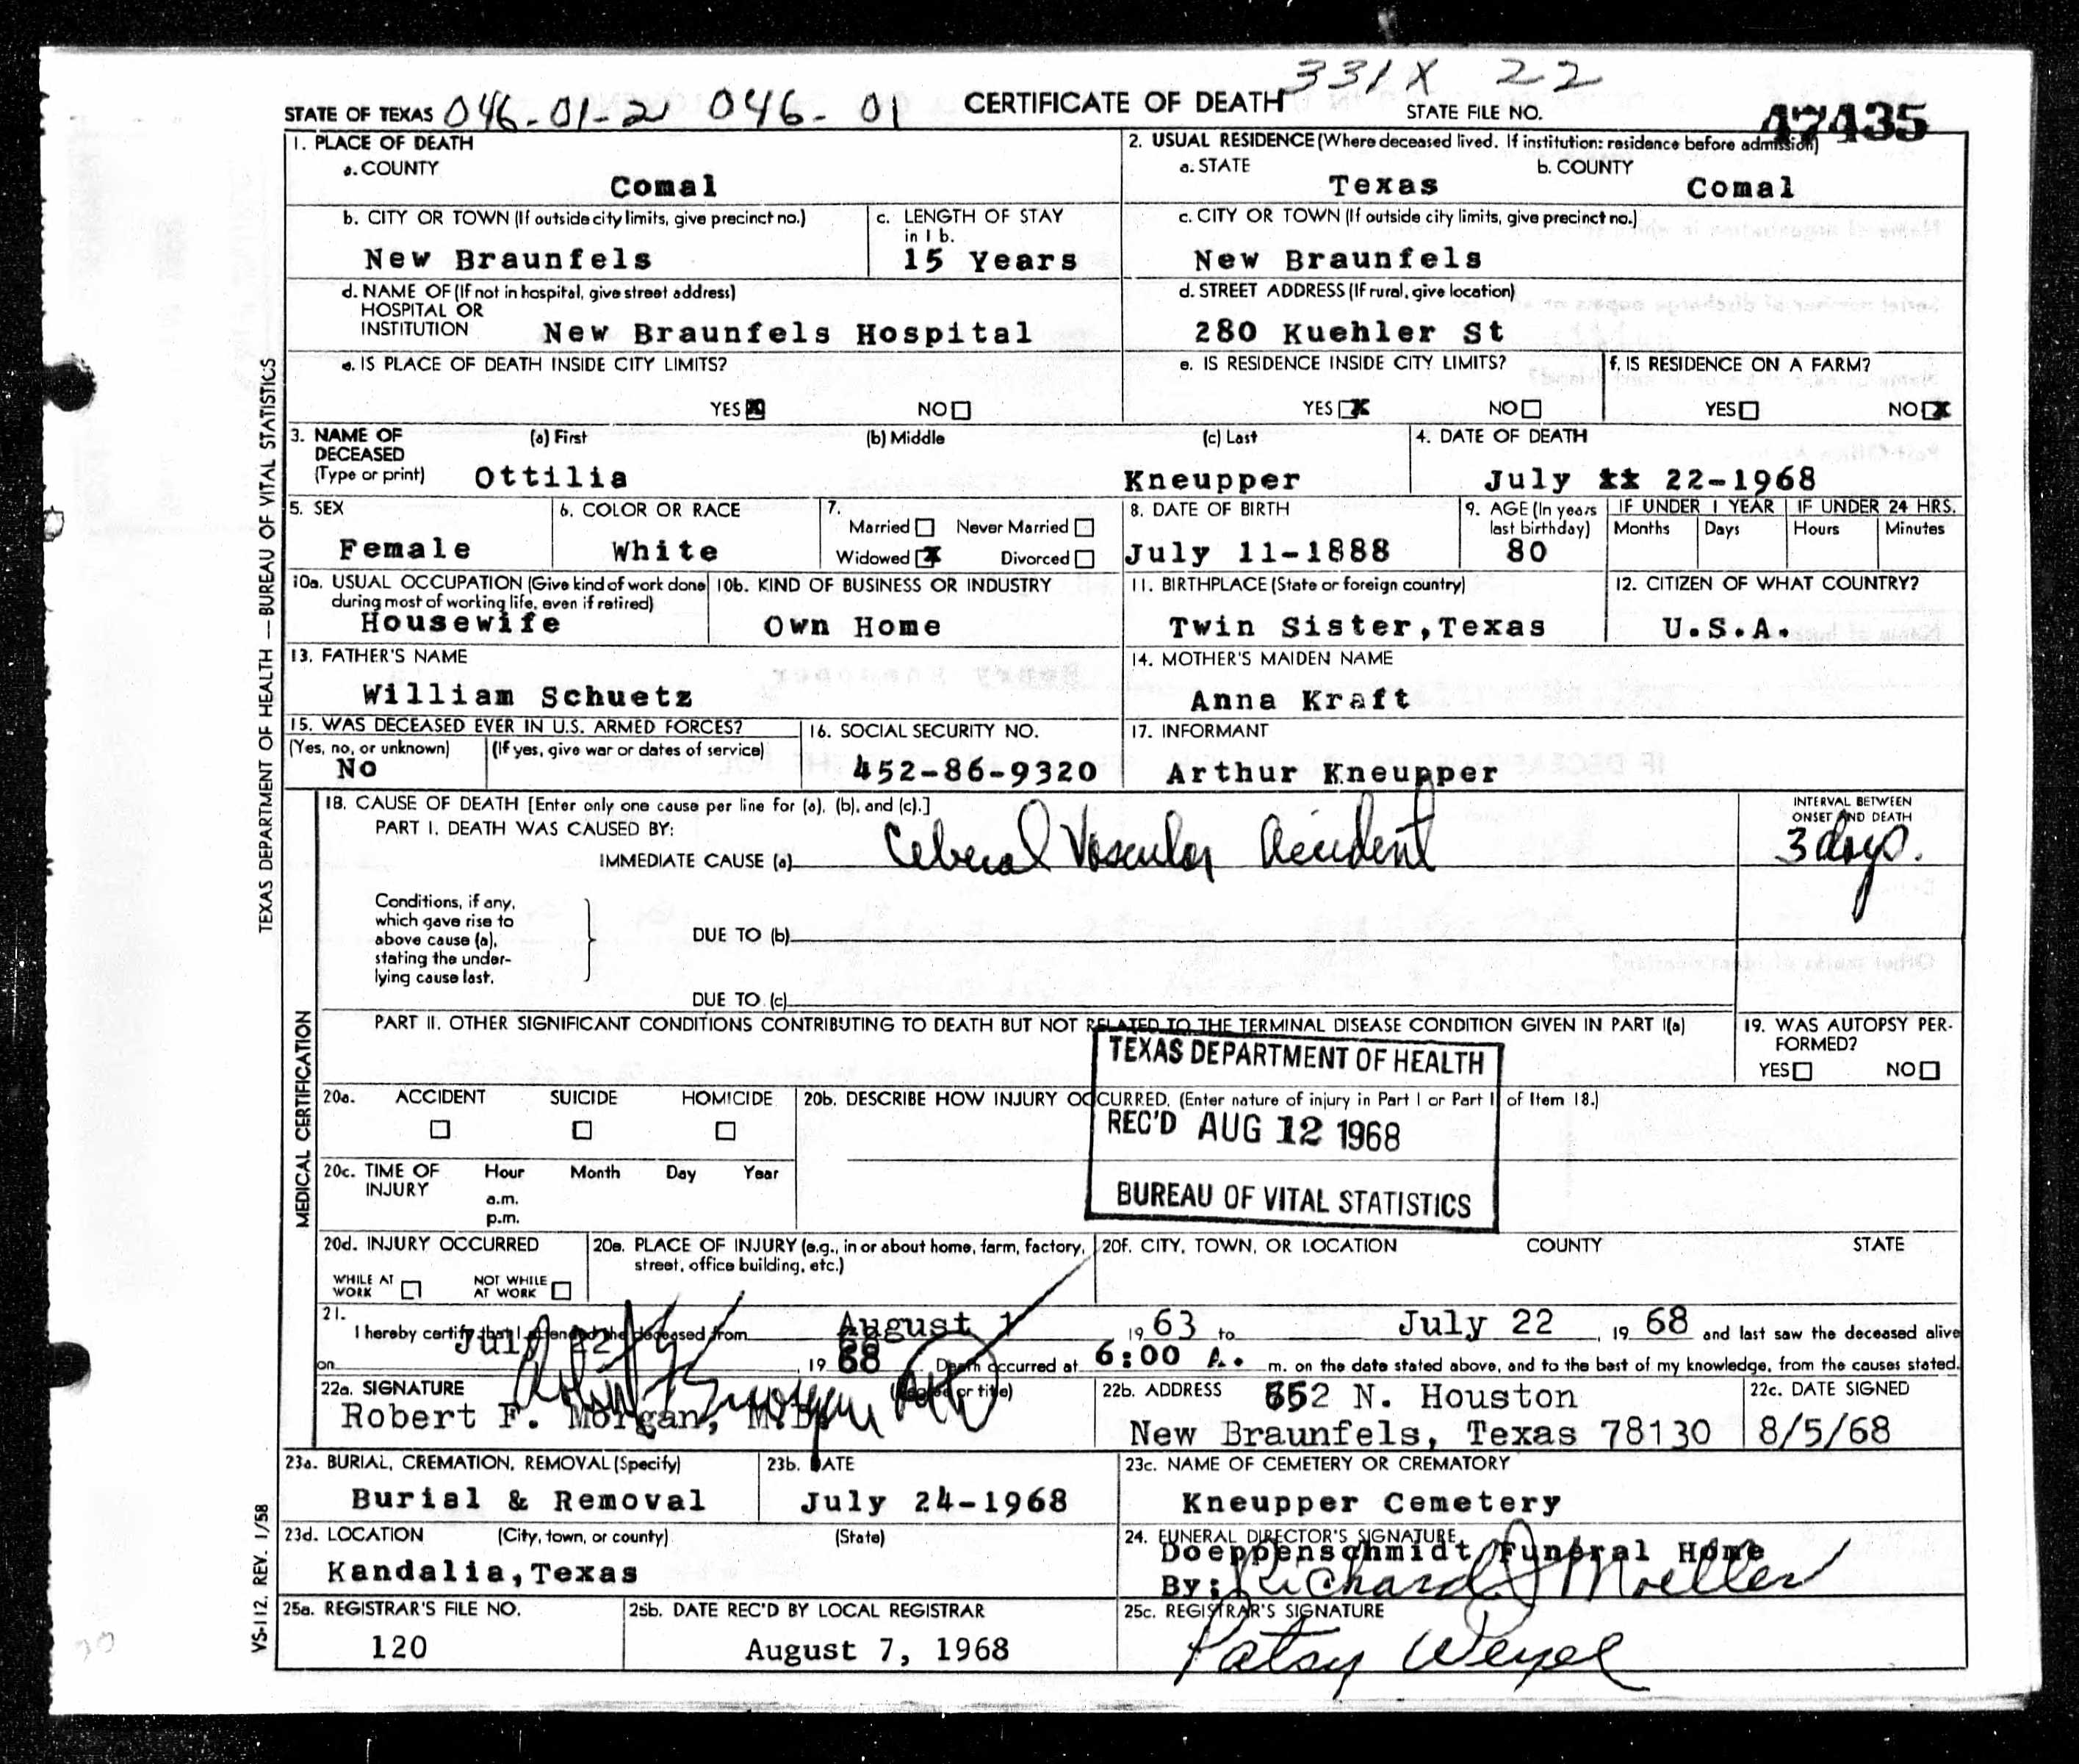 331X 22
STATE OF TEXAS 046-01-2 046-01 CERTIFICATE OF DEATH STATE FILE NO. 47435
TEXAS DEPARTMENT OF HEALTH — BUREAU OF VITAL STATISTICS
1. PLACE OF DEATH
a. COUNTY
Comal
2. USUAL RESIDENCE (Where deceased lived. If institution: residence before admission)
a. STATE
Texas
b. COUNTY
Comal
b. CITY OR TOWN (If outside city limits, give precinct no.)
New Braunfels
c. LENGTH OF STAY
in 1 b.
15 Years
c. CITY OR TOWN (If outside city limits, give precinct no.)
New Braunfels
d. NAME OF (If not in hospital, give street address)
HOSPITAL OR
INSTITUTION New Braunfels Hospital
d. STREET ADDRESS (If rural, give location)
280 Kuehler St
e. IS PLACE OF DEATH INSIDE CITY LIMITS?
YES X NO
e. IS RESIDENCE INSIDE CITY LIMITS?
YES X NO
f. IS RESIDENCE ON A FARM?
YES NO X
3. NAME OF
DECEASED
(Type or print)
(a) First
Ottilia
(b) Middle
(c) Last
Kneupper
4. DATE OF DEATH
July xx 22-1968
5. SEX
Female
6. COLOR OR RACE
White
7.
Married Never Married
Widowed X Divorced
8. DATE OF BIRTH
July 11-1888
9. AGE (In years
last birthday)
80
IF UNDER 1 YEAR
Months Days
IF UNDER 24 HRS.
Hours Minutes
10a. USUAL OCCUPATION (Give kind of work done
during most of working life, even if retired)
Housewife
10b. KIND OF BUSINESS OR INDUSTRY
Own Home
11. BIRTHPLACE (State or foreign country)
Twin Sister,Texas
12. CITIZEN OF WHAT COUNTRY?
U.S.A.
13. FATHER'S NAME
William Schuetz
14. MOTHER'S MAIDEN NAME
Anna Kraft
15. WAS DECEASED EVER IN U.S. ARMED FORCES?
(Yes, no, or unknown)
No
(If yes, give war or dates of service)
16. SOCIAL SECURITY NO.
452-86-9320
17. INFORMANT
Arthur Kneupper
MEDICAL CERTIFICATION
18. CAUSE OF DEATH [Enter only one cause per line for (a), (b), and (c).]
PART I. DEATH WAS CAUSED BY:
IMMEDIATE CAUSE (a) Cebral Vascular Accident
INTERVAL BETWEEN
ONSET AND DEATH
3 days.
Conditions, if any,
which gave rise to
above cause (a),
stating the under-
lying cause last.
DUE TO (b)
DUE TO (c)
PART II. OTHER SIGNIFICANT CONDITIONS CONTRIBUTING TO DEATH BUT NOT RELATED TO THE TERMINAL DISEASE CONDITION GIVEN IN PART I(a)
19. WAS AUTOPSY PER-
FORMED?
YES NO
20a. ACCIDENT SUICIDE HOMICIDE
20b. DESCRIBE HOW INJURY OCCURRED. (Enter nature of injury in Part I or Part II of Item 18.)
TEXAS DEPARTMENT OF HEALTH
REC'D AUG 12 1968
BUREAU OF VITAL STATISTICS
20c. TIME OF
INJURY
Hour Month Day Year
a.m.
p.m.
20d. INJURY OCCURRED
WHILE AT
WORK
NOT WHILE
AT WORK
20e. PLACE OF INJURY (e.g., in or about home, farm, factory,
street, office building, etc.)
20f. CITY, TOWN, OR LOCATION COUNTY STATE
21.
I hereby certify that I attended the deceased from August 1 1963 to July 22, 1968 and last saw the deceased alive
on July 22, 1968 Death occurred at 6:00 A. m. on the date stated above, and to the best of my knowledge, from the causes stated.
22a. SIGNATURE (Degree or title)
Robert F. Morgan, M.D.
22b. ADDRESS 552 N. Houston
New Braunfels, Texas 78130
22c. DATE SIGNED
8/5/68
23a. BURIAL, CREMATION, REMOVAL (Specify)
Burial & Removal
23b. DATE
July 24-1968
23c. NAME OF CEMETERY OR CREMATORY
Kneupper Cemetery
23d. LOCATION (City, town, or county) (State)
Kandalia,Texas
24. FUNERAL DIRECTOR'S SIGNATURE
Doeppenschmidt Funeral Home
By: Richard J Moeller
25a. REGISTRAR'S FILE NO.
120
25b. DATE REC'D BY LOCAL REGISTRAR
August 7, 1968
25c. REGISTRAR'S SIGNATURE
Patsy Weyel
VS-112, REV. 1/58